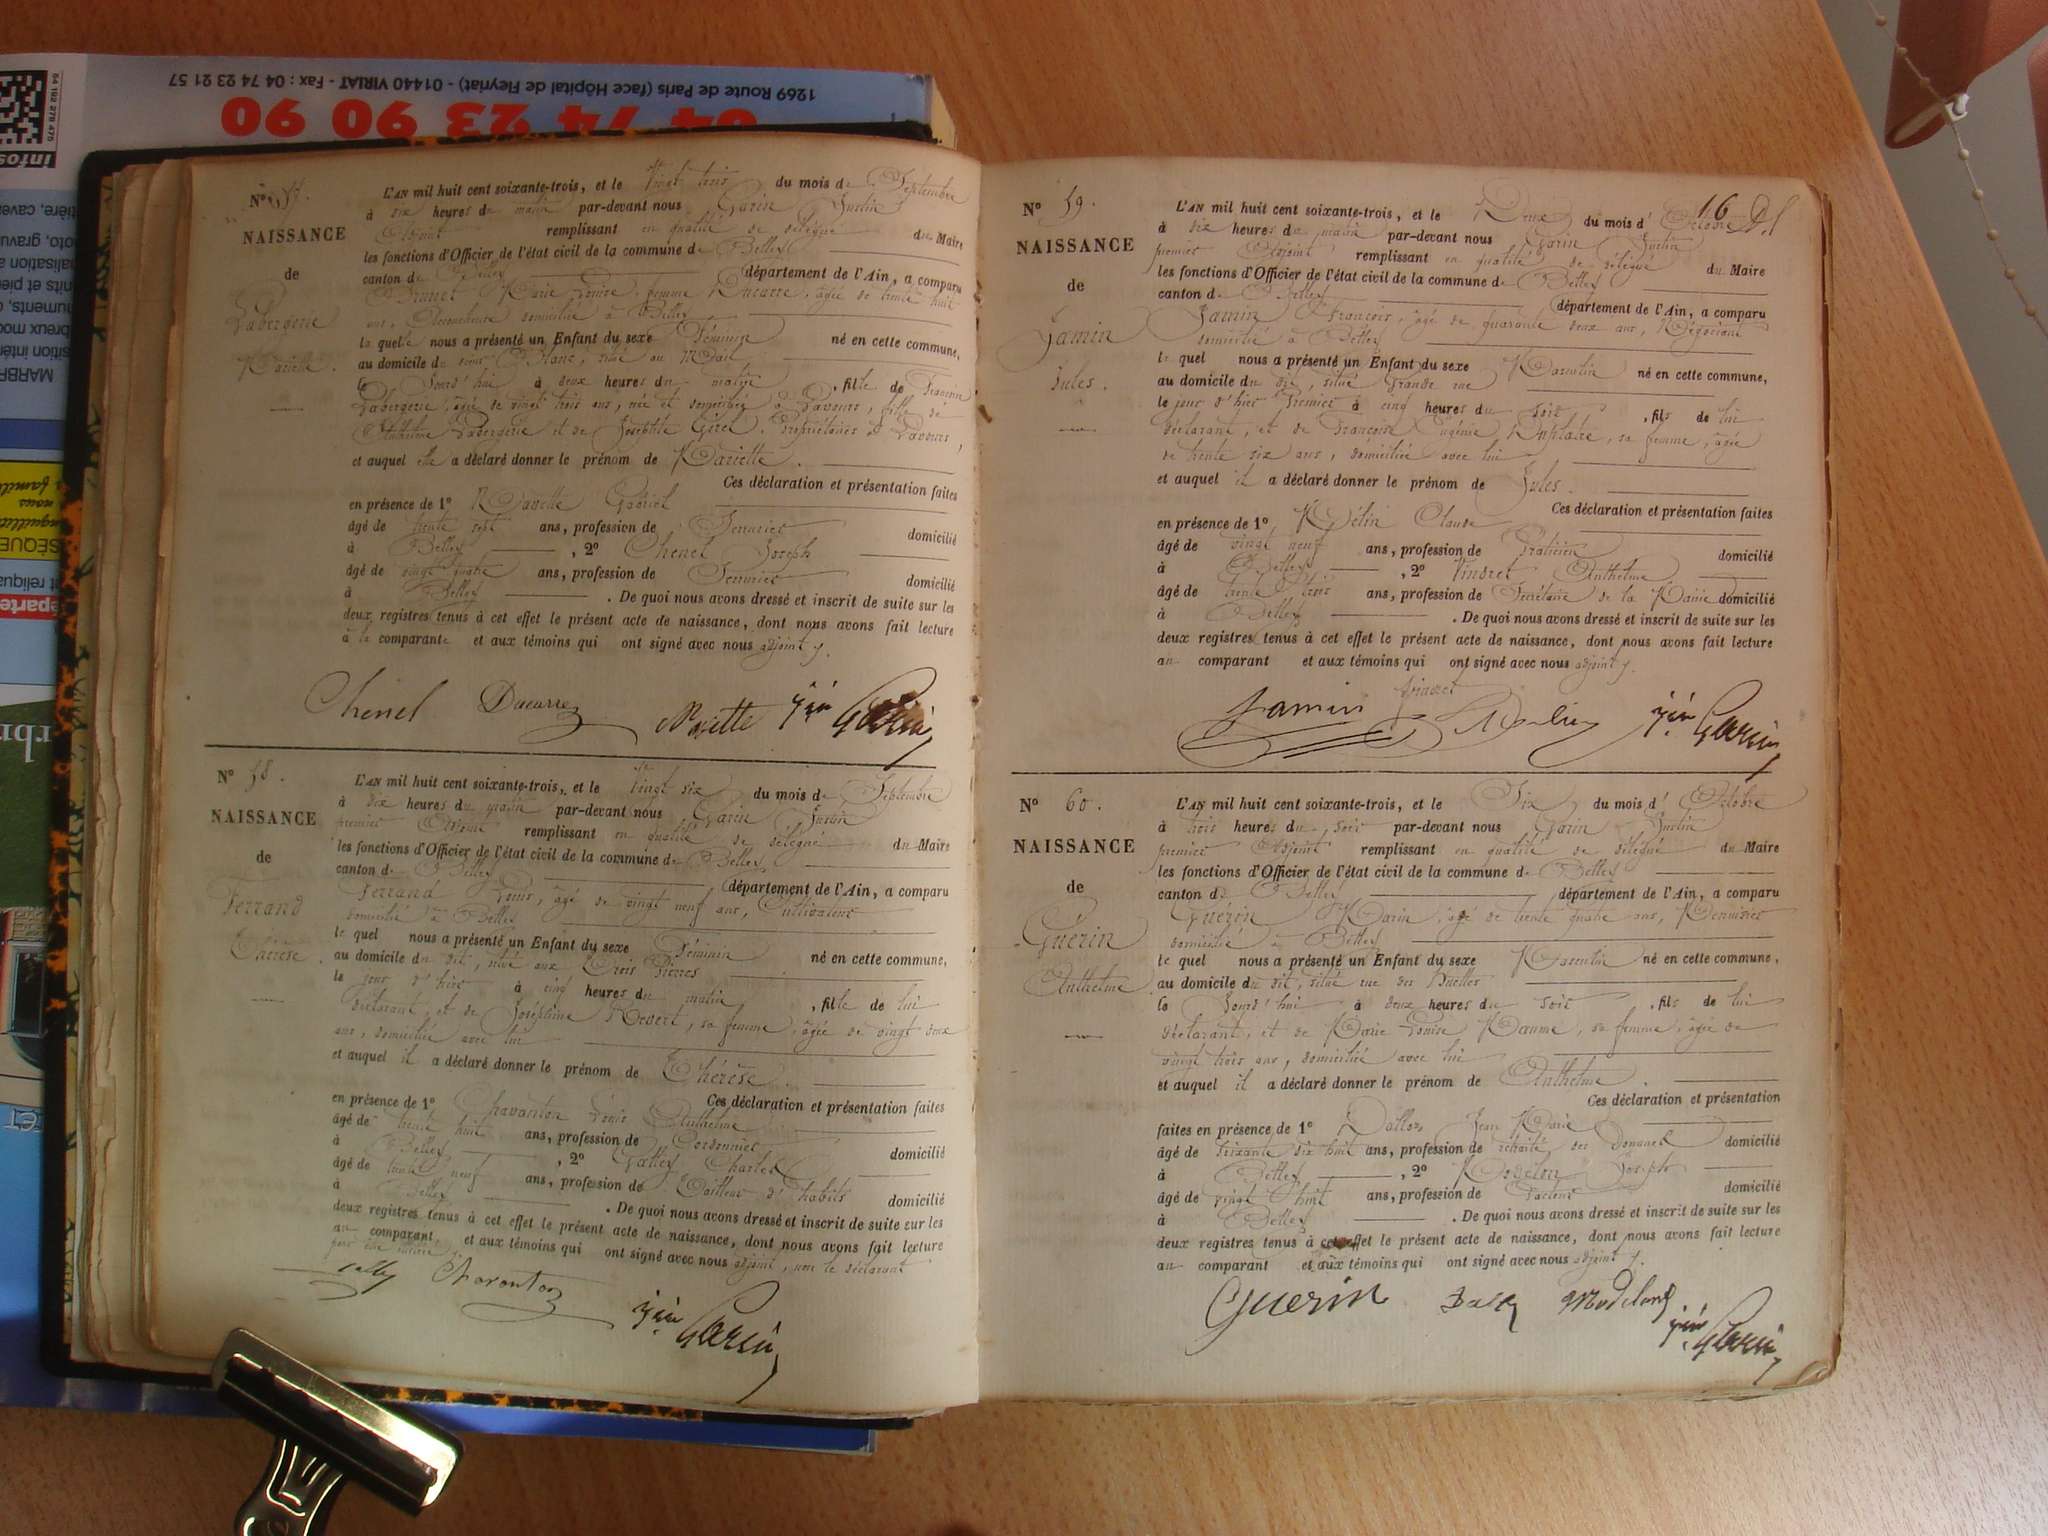 1269 Route de Paris (face Hôpital de Fleyriat) - 01440 VIRIAT - Fax : 04 74 23 21 57
04 74 23 90 90
N° 57.
NAISSANCE
de
Labergerie
Mariette.
L'AN mil huit cent soixante-trois, et le vingt trois du mois de Septembre
à six heures du matin par-devant nous Garin Justin
Adjoint remplissant en qualité de délégué du Maire
les fonctions d'Officier de l'état civil de la commune de Belley
canton de Belley département de l'Ain, a comparu
Brunet Marie Louise femme Ducarre, âgée de trente huit
ans, Accoucheuse domiciliée à Belley
laquelle nous a présenté un Enfant du sexe Féminin né en cette commune,
au domicile du sieur Blanc, situé au Mail
le Jourd'hui à deux heures du matin, fille de Francine
Labergerie, âgée de vingt trois ans, née et domiciliée à Lavours, fille de
Anthelme Labergerie et de Josephte Girel, Propriétaires à Lavours,
et auquel elle a déclaré donner le prénom de Mariette.
Ces déclaration et présentation faites
en présence de 1° Gabriel
âgé de trente sept ans, profession de Serrurier domicilié
à Belley, 2° Chenel Joseph
âgé de vingt quatre ans, profession de Serrurier domicilié
à Belley. De quoi nous avons dressé et inscrit de suite sur les
deux registres tenus à cet effet le présent acte de naissance, dont nous avons fait lecture
à la comparante et aux témoins qui ont signé avec nous adjoint
Chenel Ducarre Garin
N° 58.
NAISSANCE
de
Ferrand
Thérèse.
L'AN mil huit cent soixante-trois, et le vingt six du mois de Septembre
à dix heures du matin par-devant nous Garin Justin
premier Adjoint remplissant en qualité de délégué du Maire
les fonctions d'Officier de l'état civil de la commune de Belley
canton de Belley département de l'Ain, a comparu
Ferrand Louis, âgé de vingt neuf ans, Cultivateur
domicilié à Belley
lequel nous a présenté un Enfant du sexe Féminin né en cette commune,
au domicile du dit, situé aux Trois Pierres
le jour d'hier à cinq heures du matin, fille de lui
déclarant, et de Joséphine, sa femme, âgée de vingt deux
ans, domiciliée avec lui
et auquel il a déclaré donner le prénom de Thérèse
Ces déclaration et présentation faites
en présence de 1° Charanton Louis Anthelme
âgé de trente huit ans, profession de Cordonnier domicilié
à Belley, 2° Charles
âgé de trente neuf ans, profession de Tailleur d'habits domicilié
à Belley. De quoi nous avons dressé et inscrit de suite sur les
deux registres tenus à cet effet le présent acte de naissance, dont nous avons fait lecture
au comparant et aux témoins qui ont signé avec nous adjoint, non le déclarant
Charanton Garin
16
N° 59.
NAISSANCE
de
Jamin
Jules.
L'AN mil huit cent soixante-trois, et le Deux du mois d'Octobre
à dix heures du matin par-devant nous Garin Justin
premier Adjoint remplissant en qualité de délégué du Maire
les fonctions d'Officier de l'état civil de la commune de Belley
canton de Belley département de l'Ain, a comparu
Jamin François, âgé de quarante deux ans, Négociant
domicilié à Belley
lequel nous a présenté un Enfant du sexe Masculin né en cette commune,
au domicile du dit, situé Grande rue
le jour d'hier Premier à cinq heures du soir, fils de lui
déclarant, et de Françoise Eugénie, sa femme, âgée
de trente six ans, domiciliée avec lui
et auquel il a déclaré donner le prénom de Jules.
Ces déclaration et présentation faites
en présence de 1° Claude
âgé de vingt neuf ans, profession de Praticien domicilié
à Belley, 2° Vindret Anthelme
âgé de trente trois ans, profession de Secrétaire de la Mairie domicilié
à Belley. De quoi nous avons dressé et inscrit de suite sur les
deux registres tenus à cet effet le présent acte de naissance, dont nous avons fait lecture
au comparant et aux témoins qui ont signé avec nous adjoint
Vindret
Jamin Garin
N° 60.
NAISSANCE
de
Guerin
Anthelme
L'AN mil huit cent soixante-trois, et le Six du mois d'Octobre
à trois heures du soir par-devant nous Garin Justin
premier Adjoint remplissant en qualité de délégué du Maire
les fonctions d'Officier de l'état civil de la commune de Belley
canton de Belley département de l'Ain, a comparu
Guerin Marin, âgé de trente quatre ans, Menuisier
domicilié à Belley
lequel nous a présenté un Enfant du sexe Masculin né en cette commune,
au domicile du dit, situé rue des Ruelles
le Jourd'hui à deux heures du soir, fils de lui
déclarant, et de Marie Louise, sa femme, âgée de
vingt trois ans, domiciliée avec lui
et auquel il a déclaré donner le prénom de Anthelme.
Ces déclaration et présentation
faites en présence de 1° Jean Marie
âgé de soixante dix huit ans, profession de retraité des Douanes domicilié
à Belley, 2° Joseph
âgé de vingt huit ans, profession de Facteur domicilié
à Belley. De quoi nous avons dressé et inscrit de suite sur les
deux registres tenus à cet effet le présent acte de naissance, dont nous avons fait lecture
au comparant et aux témoins qui ont signé avec nous adjoint
Guerin Garin